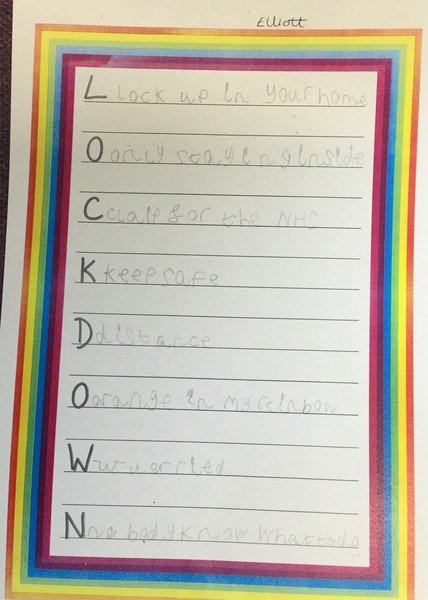 Elliott
L lock up in your home
O only staying inside
C for the NHS
K keep safe
D distance
O orange in my rainbow
W
N no body know what to do